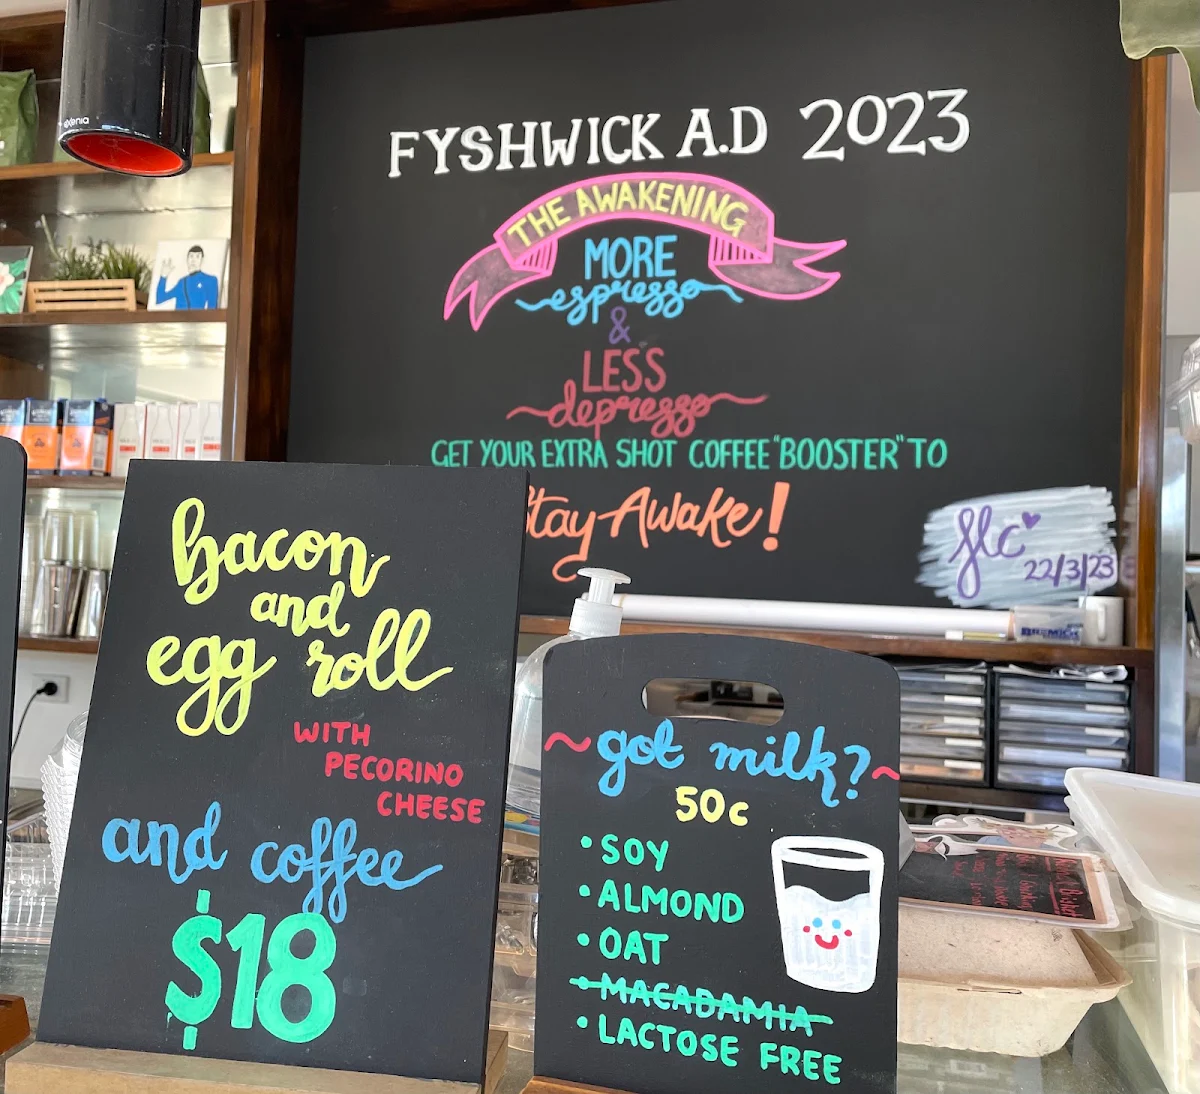 FYSHWICK A.D 2023
THE AWAKENING
MORE
espresso
&
LESS
depresso
GET YOUR EXTRA SHOT COFFEE "BOOSTER" TO
Stay Awake!
flc
22/3/23
bacon
and
egg roll
WITH
PECORINO
CHEESE
and coffee
$18
~got milk?~
50c
• SOY
• ALMOND
• OAT
• MACADAMIA
• LACTOSE FREE